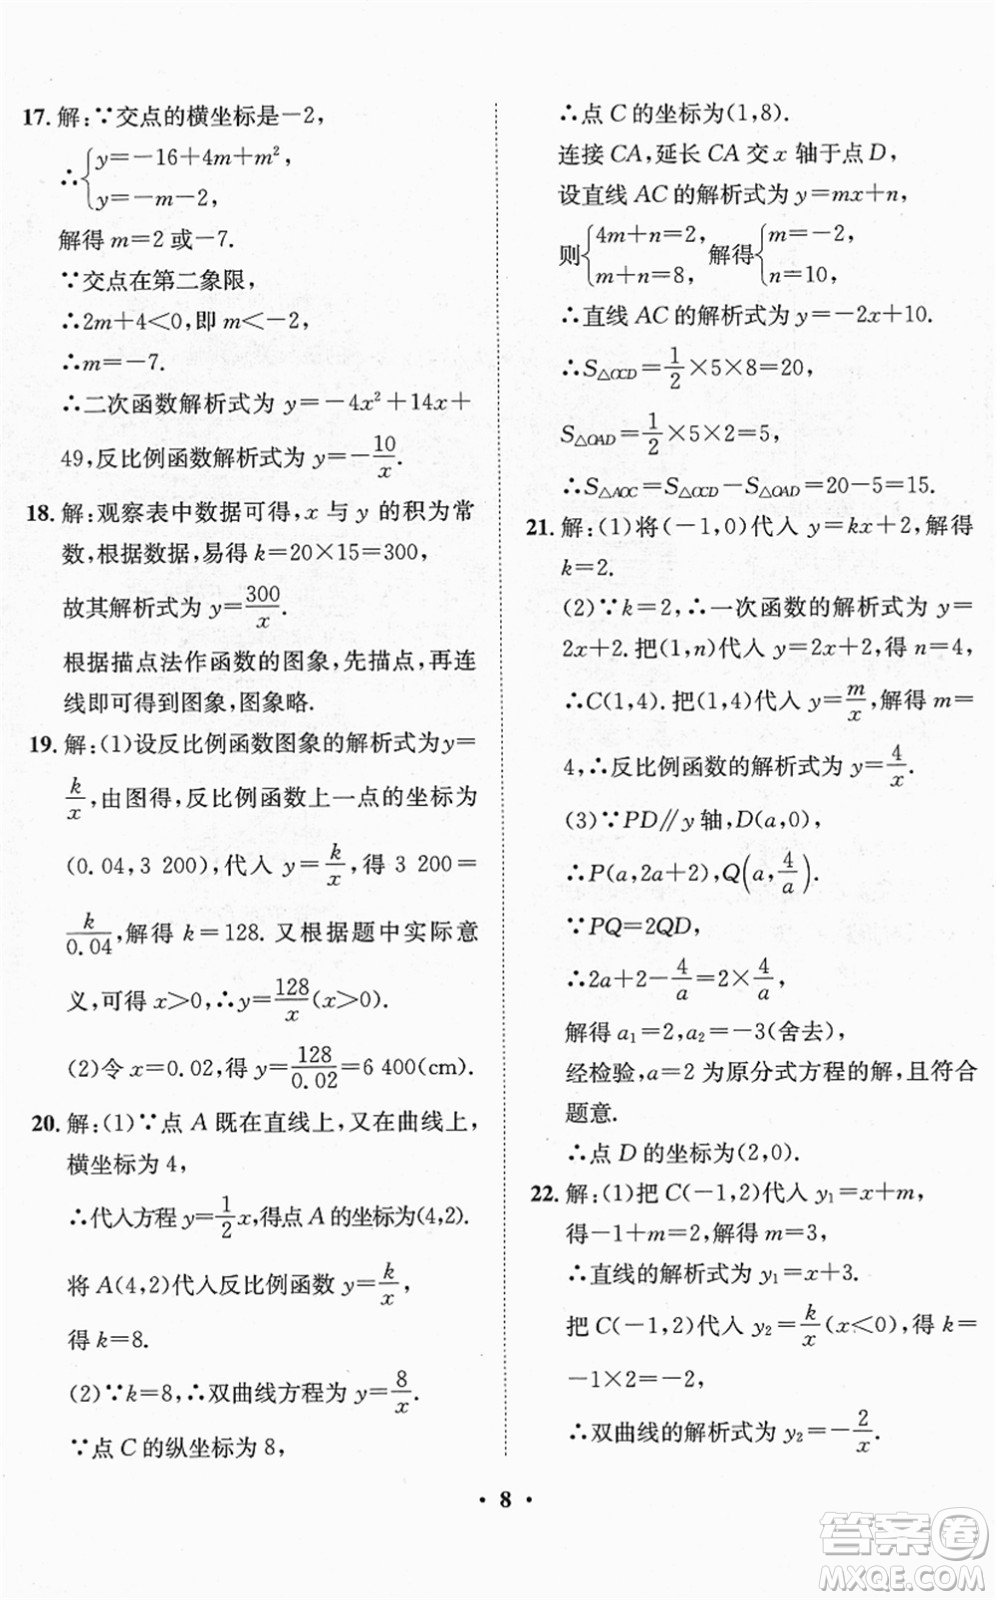 17. 解:∵交点的横坐标是-2,
∴{y=-16+4m+m²,
y=-m-2,
解得 m=2 或-7.
∵交点在第二象限,
∴2m+4<0,即 m<-2,
∴m=-7.
∴二次函数解析式为 y=-4x²+14x+
49,反比例函数解析式为 y=-10/x.
18. 解:观察表中数据可得,x 与 y 的积为常
数,根据数据,易得 k=20×15=300,
故其解析式为 y=300/x.
根据描点法作函数的图象,先描点,再连
线即可得到图象,图象略.
19. 解:(1)设反比例函数图象的解析式为 y=
k/x,由图得,反比例函数上一点的坐标为
(0.04,3 200),代入 y=k/x,得 3 200=
k/0.04,解得 k=128. 又根据题中实际意
义,可得 x>0,∴y=128/x(x>0).
(2)令 x=0.02,得 y=128/0.02=6 400(cm).
20. 解:(1)∵点 A 既在直线上,又在曲线上,
横坐标为 4,
∴代入方程 y=1/2x,得点 A 的坐标为(4,2).
将 A(4,2)代入反比例函数 y=k/x,
得 k=8.
(2)∵k=8,∴双曲线方程为 y=8/x.
∵点 C 的纵坐标为 8,
∴点 C 的坐标为(1,8).
连接 CA,延长 CA 交 x 轴于点 D,
设直线 AC 的解析式为 y=mx+n,
则{4m+n=2, m+n=8, 解得{m=-2, n=10,
∴直线 AC 的解析式为 y=-2x+10.
∴S△OCD=1/2×5×8=20,
S△OAD=1/2×5×2=5,
∴S△AOC=S△OCD-S△OAD=20-5=15.
21. 解:(1)将(-1,0)代入 y=kx+2,解得
k=2.
(2)∵k=2,∴一次函数的解析式为 y=
2x+2. 把(1,n)代入 y=2x+2,得 n=4,
∴C(1,4). 把(1,4)代入 y=m/x,解得 m=
4,∴反比例函数的解析式为 y=4/x.
(3)∵PD∥y 轴,D(a,0),
∴P(a,2a+2),Q(a,4/a).
∵PQ=2QD,
∴2a+2-4/a=2×4/a,
解得 a₁=2,a₂=-3(舍去),
经检验,a=2 为原分式方程的解,且符合
题意.
∴点 D 的坐标为(2,0).
22. 解:(1)把 C(-1,2)代入 y₁=x+m,
得-1+m=2,解得 m=3,
∴直线的解析式为 y₁=x+3.
把 C(-1,2)代入 y₂=k/x(x<0),得 k=
-1×2=-2,
∴双曲线的解析式为 y₂=-2/x.
· 8 ·
答案卷
MXQE.COM